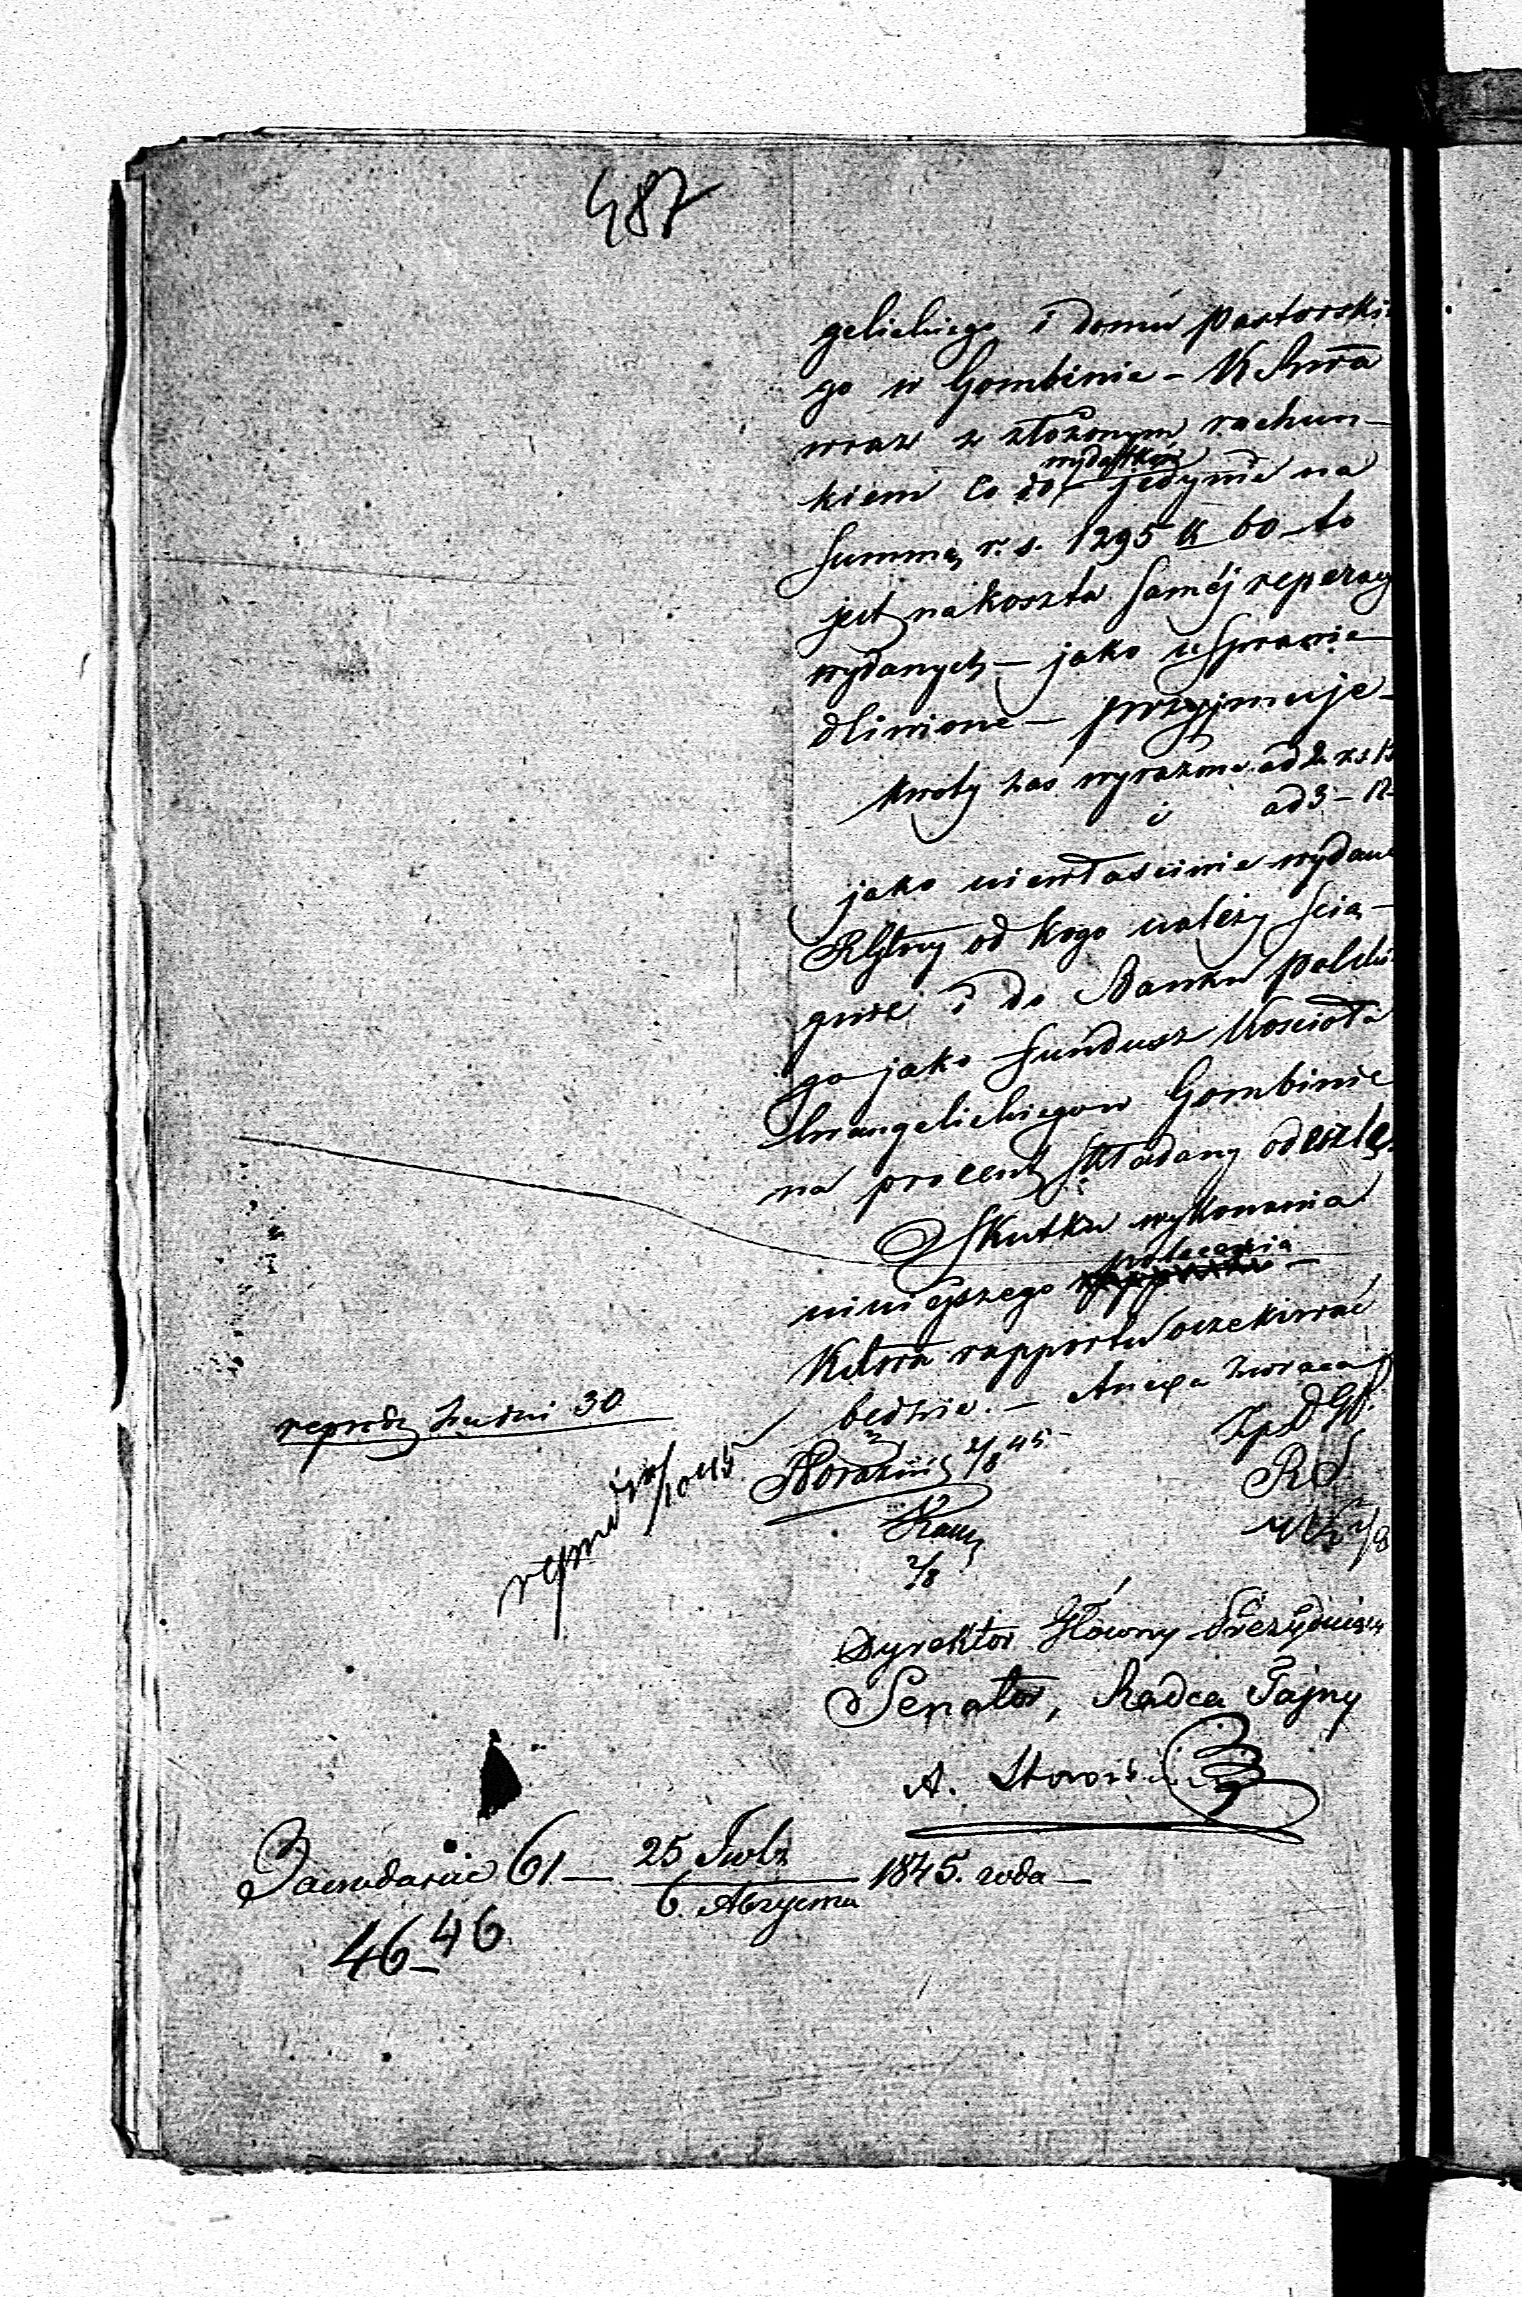 487
gelickiego i domu pastorskie
go w Gombinie – K Rwa
wraz z złożonym rachun-
kiem co do wydatków jedynie na
summę r. s. 1295 k 60 – to
jest na koszta samej reperacyi
wydanych – jako usprawie-
dliwione – przyjmuje –
Kwoty zaś wyrażone ad 2 rs 15
i ad 3 – 12
jako niewłaściwie wydane
Rządny od kogo należy ścią-
gnie i do Banku Polskie
go jako fundusz Kościoła
Ewangelickiego w Gombinie
na procent składany odeszle.
O Skutku wykonania
niniejszego polecenia –
K Rwa rapportu oczekiwać
będzie. – Anexa zwraca
reprodz za dni 30
2/8 45
2/8
Dyrektor Główny Prezydujący
Senator, Radca Tajny
A.
61 – 25 / 6 1845. roda –
46 – 46